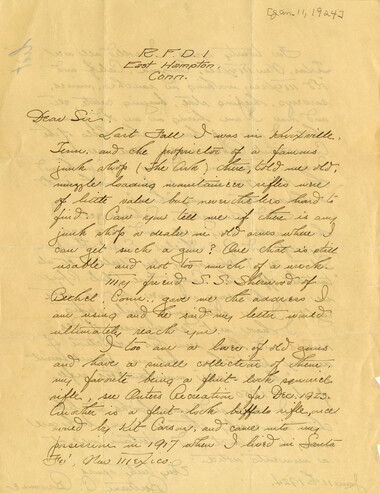 [Jan. 11, 1924]
R. F. D. 1
East Hampton.
Conn.
Dear Sir:
Last Fall I was in Knoxville,
Tenn. and the proprietor of a famous
junk shop (The Ark) there, told me old
muzzle loading mountaineer rifles were
of little value but nevertheless hard to
find. Can you tell me if there is any
junk shop or dealer in old arms where I
can get such a gun? One that is still
usable and not too much of a wreck.
My friend S. S. Sherwood of
Bethel, Conn., gave me the address I
am using and he said my letter would
ultimately reach you.
I too am a lover of old arms
and have a small collection of them
my favorite being a flint lock squirrel
rifle, see Outers Recreation for Dec. 1923.
Another is a flint lock buffalo rifle, once
owned by Kit Carson, and came into my
possession in 1917 when I lived in Santa
Fé, New Mexico.